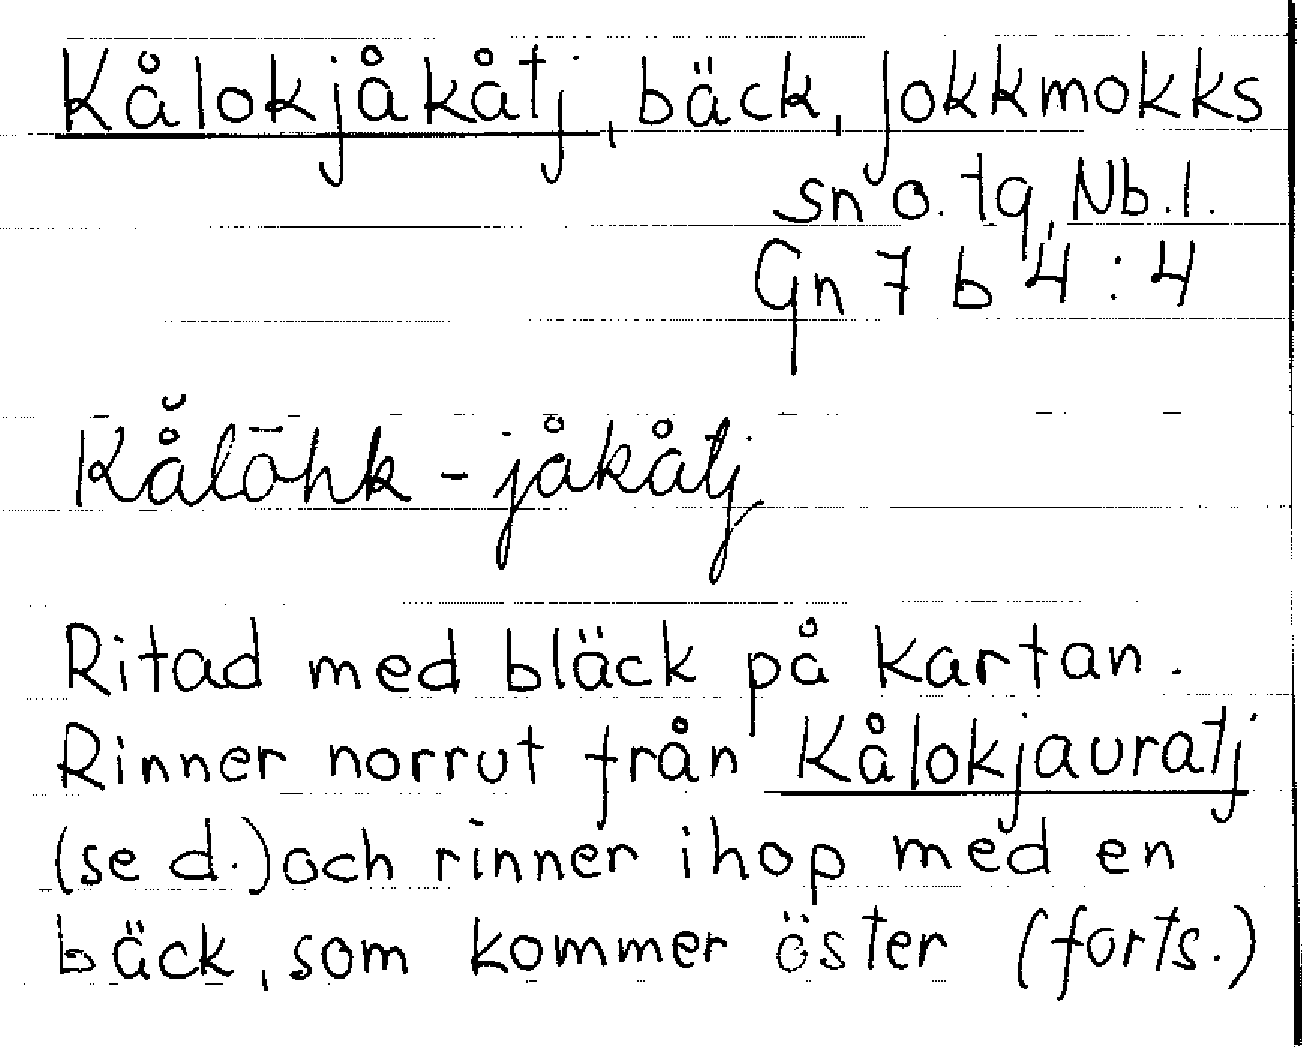 Kålokjåkåtj, bäck, Jokkmokks
sn o. tg, Nb. l.
Gn 7 b 4 : 4
Kå̆lōhk - jåkåtj
Ritad med bläck på kartan.
Rinner norrut från Kålokjauratj
(se d.) och rinner ihop med en
bäck, som kommer öster (forts.)